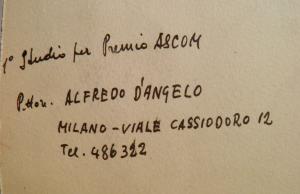 1° Studio per Premio ASCOM
Pittore. ALFREDO D'ANGELO
MILANO - VIALE CASSIODORO 12
Tel. 486322